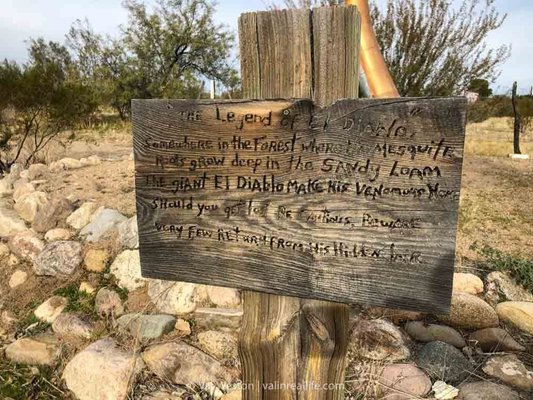 "The Legend of El Diablo"
Somewhere in the Forest where the Mesquite
Roots grow deep in the Sandy Loam
The giant El Diablo make his venomous Home
Should you get lost Be Cautious, Beware
Very Few Return From His Hidden Lair
© Val Weston | valinreallife.com